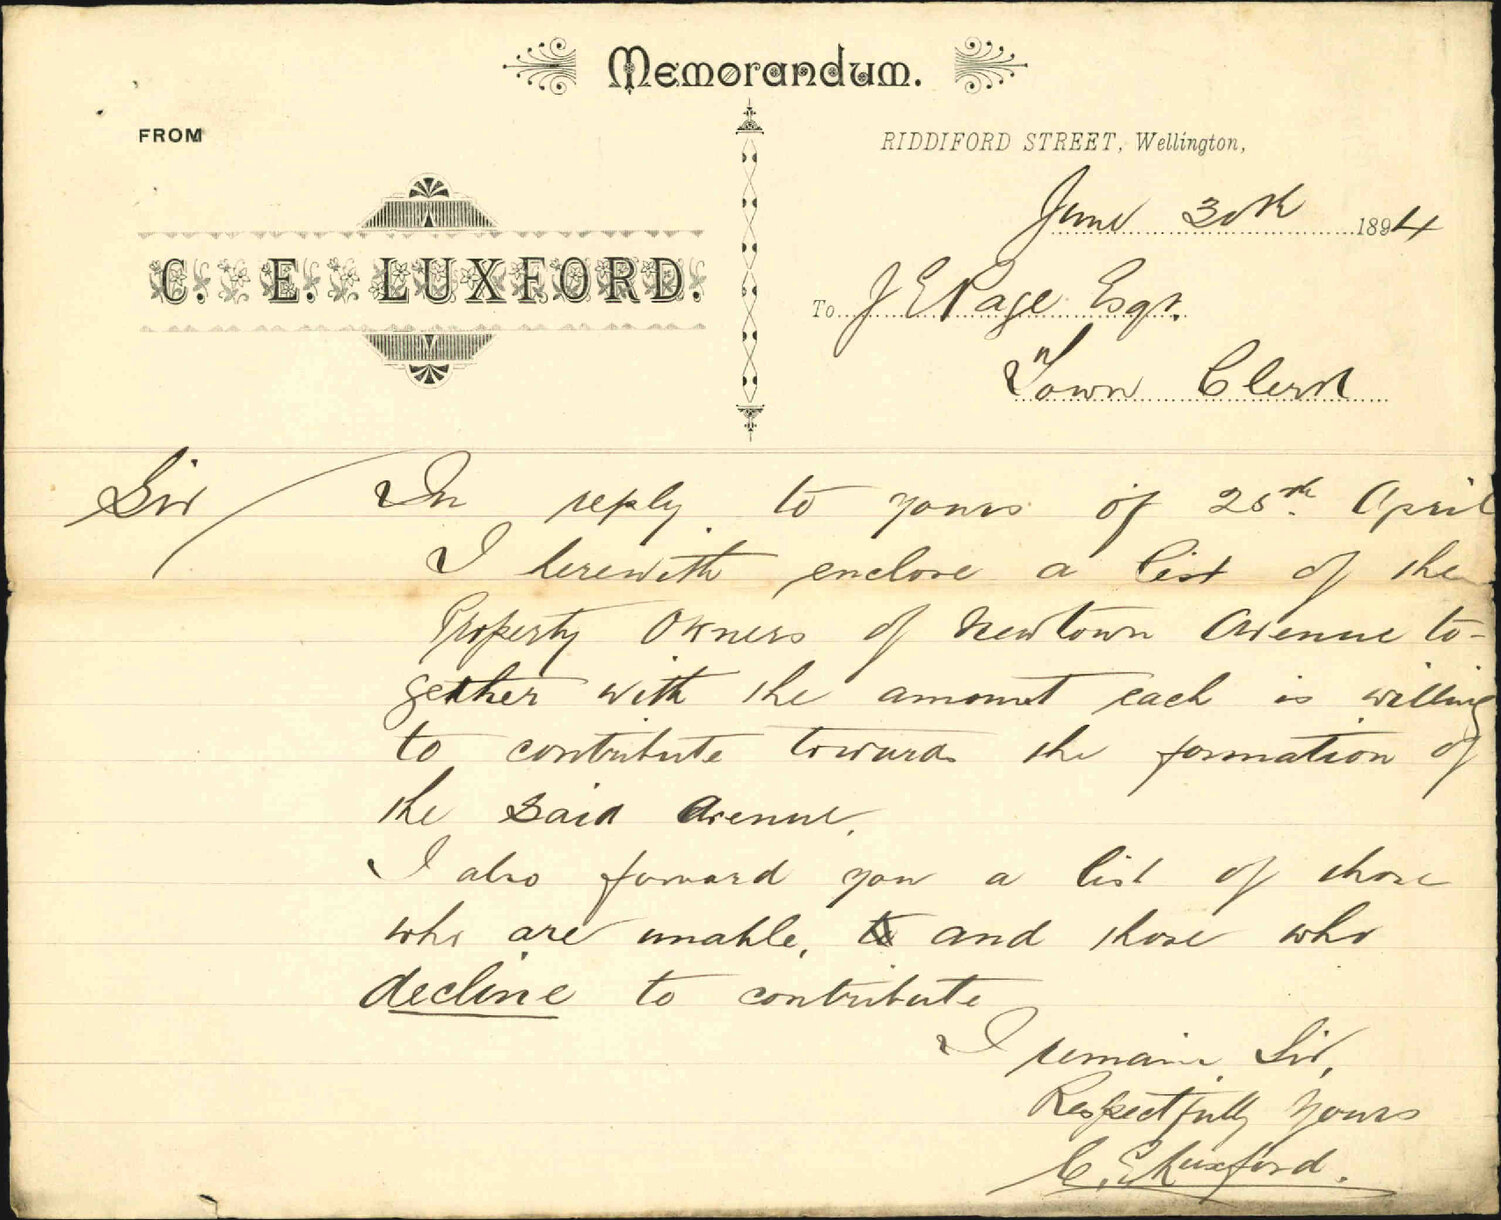 Memorandum.
FROM
RIDDIFORD STREET, Wellington,
June 30th 1894
C. E. LUXFORD.
To J E Page Esqr.
Town Clerk
Sir In reply to yours of 25th. April
I herewith enclose a list of the
Property Owners of Newtown Avenue to-
gether with the amount each is willing
to contribute towards the formation of
the said Avenue.
I also forward you a list of those
who are unable, and those who
decline to contribute
I remain Sir,
Respectfully Yours
C. E Luxford.